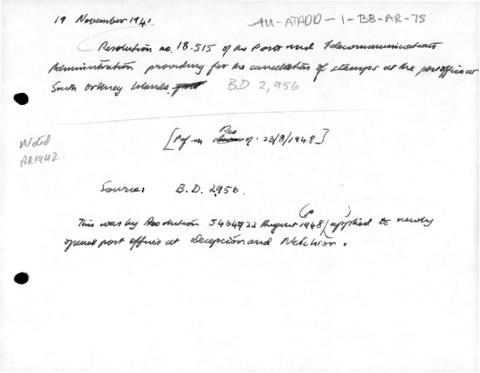 19 November 1941.
AU-ATADD-1-BB-AR-75
Resolution no. 18.515 of the Posts and Telecommunications
Administration providing for the cancellation of stamps at the post office at
South Orkney Islands. BD 2,956
Noted
AR1942
[Ref in Res of 23/8/1948]
Source: B.D. 2,956.
This was by Resolution 22 August 1948 applied to newly
opened post offices at Decepcion and Melchior.